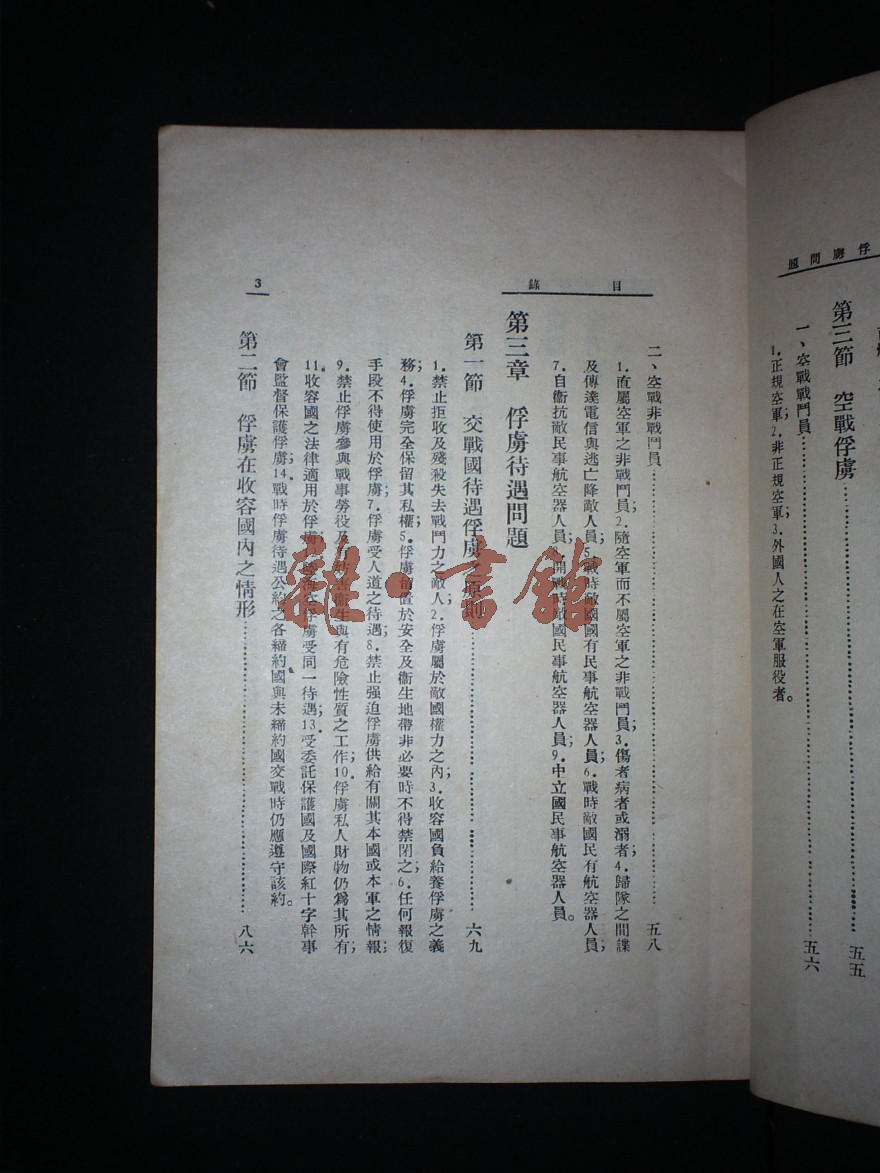 俘虜問題
第三節 空戰俘虜……五五
一、空戰戰鬥員……五六
1.正規空軍；2.非正規空軍；3.外國人之在空軍服役者。
目錄
二、空戰非戰鬥員……五八
1.直屬空軍之非戰鬥員；2.隨空軍而不屬空軍之非戰鬥員；3.傷者病者或溺者；4.歸隊之間諜
及傳達電信與逃亡降敵人員；5.戰時敵國國有民事航空器人員；6.戰時敵國民有航空器人員；
7.自衞抗敵民事航空器人員；8.開戰時敵國民事航空器人員；9.中立國民事航空器人員。
第三章 俘虜待遇問題
第一節 交戰國待遇俘虜之原則……六九
1.禁止拒收及殘殺失去戰鬥力之敵人；2.俘虜屬於敵國權力之內；3.收容國負給養俘虜之義
務；4.俘虜完全保留其私權；5.俘虜留置於安全及衞生地帶非必要時不得禁閉之；6.任何報復
手段不得使用於俘虜；7.俘虜受人道之待遇；8.禁止强迫俘虜供給有關其本國或本軍之情報；
9.禁止俘虜參與戰事勞役及有妨害衞生與有危險性質之工作；10.俘虜私人財物仍爲其所有；
11.收容國之法律適用於俘虜；12.陸海空俘虜受同一待遇；13.受委託保護國及國際紅十字幹事
會監督保護俘虜；14.戰時俘虜待遇公約之各締約國與未締約國交戰時仍應遵守該約。
第二節 俘虜在收容國內之情形……八六
3
雜·書館